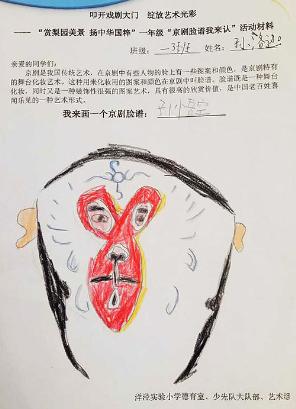 叩开戏剧大门　绽放艺术光彩
——“赏梨园美景 扬中华国粹”一年级“京剧脸谱我来认”活动材料
班级： 姓名：
亲爱的同学们：
京剧是我国传统艺术，在京剧中有些人物的脸上有一些图案和颜色，是京剧特有
的舞台化妆艺术，这种用来化妆用的图案和颜色在京剧中叫脸谱，脸谱既是一种舞台
化妆，同时又是一种装饰性很强的图案艺术，具有很高的欣赏价值，是中国老百姓喜
闻乐见的一种艺术形式。
我来画一个京剧脸谱： 孙悟空
洋泾实验小学德育室、少先队大队部、艺术组